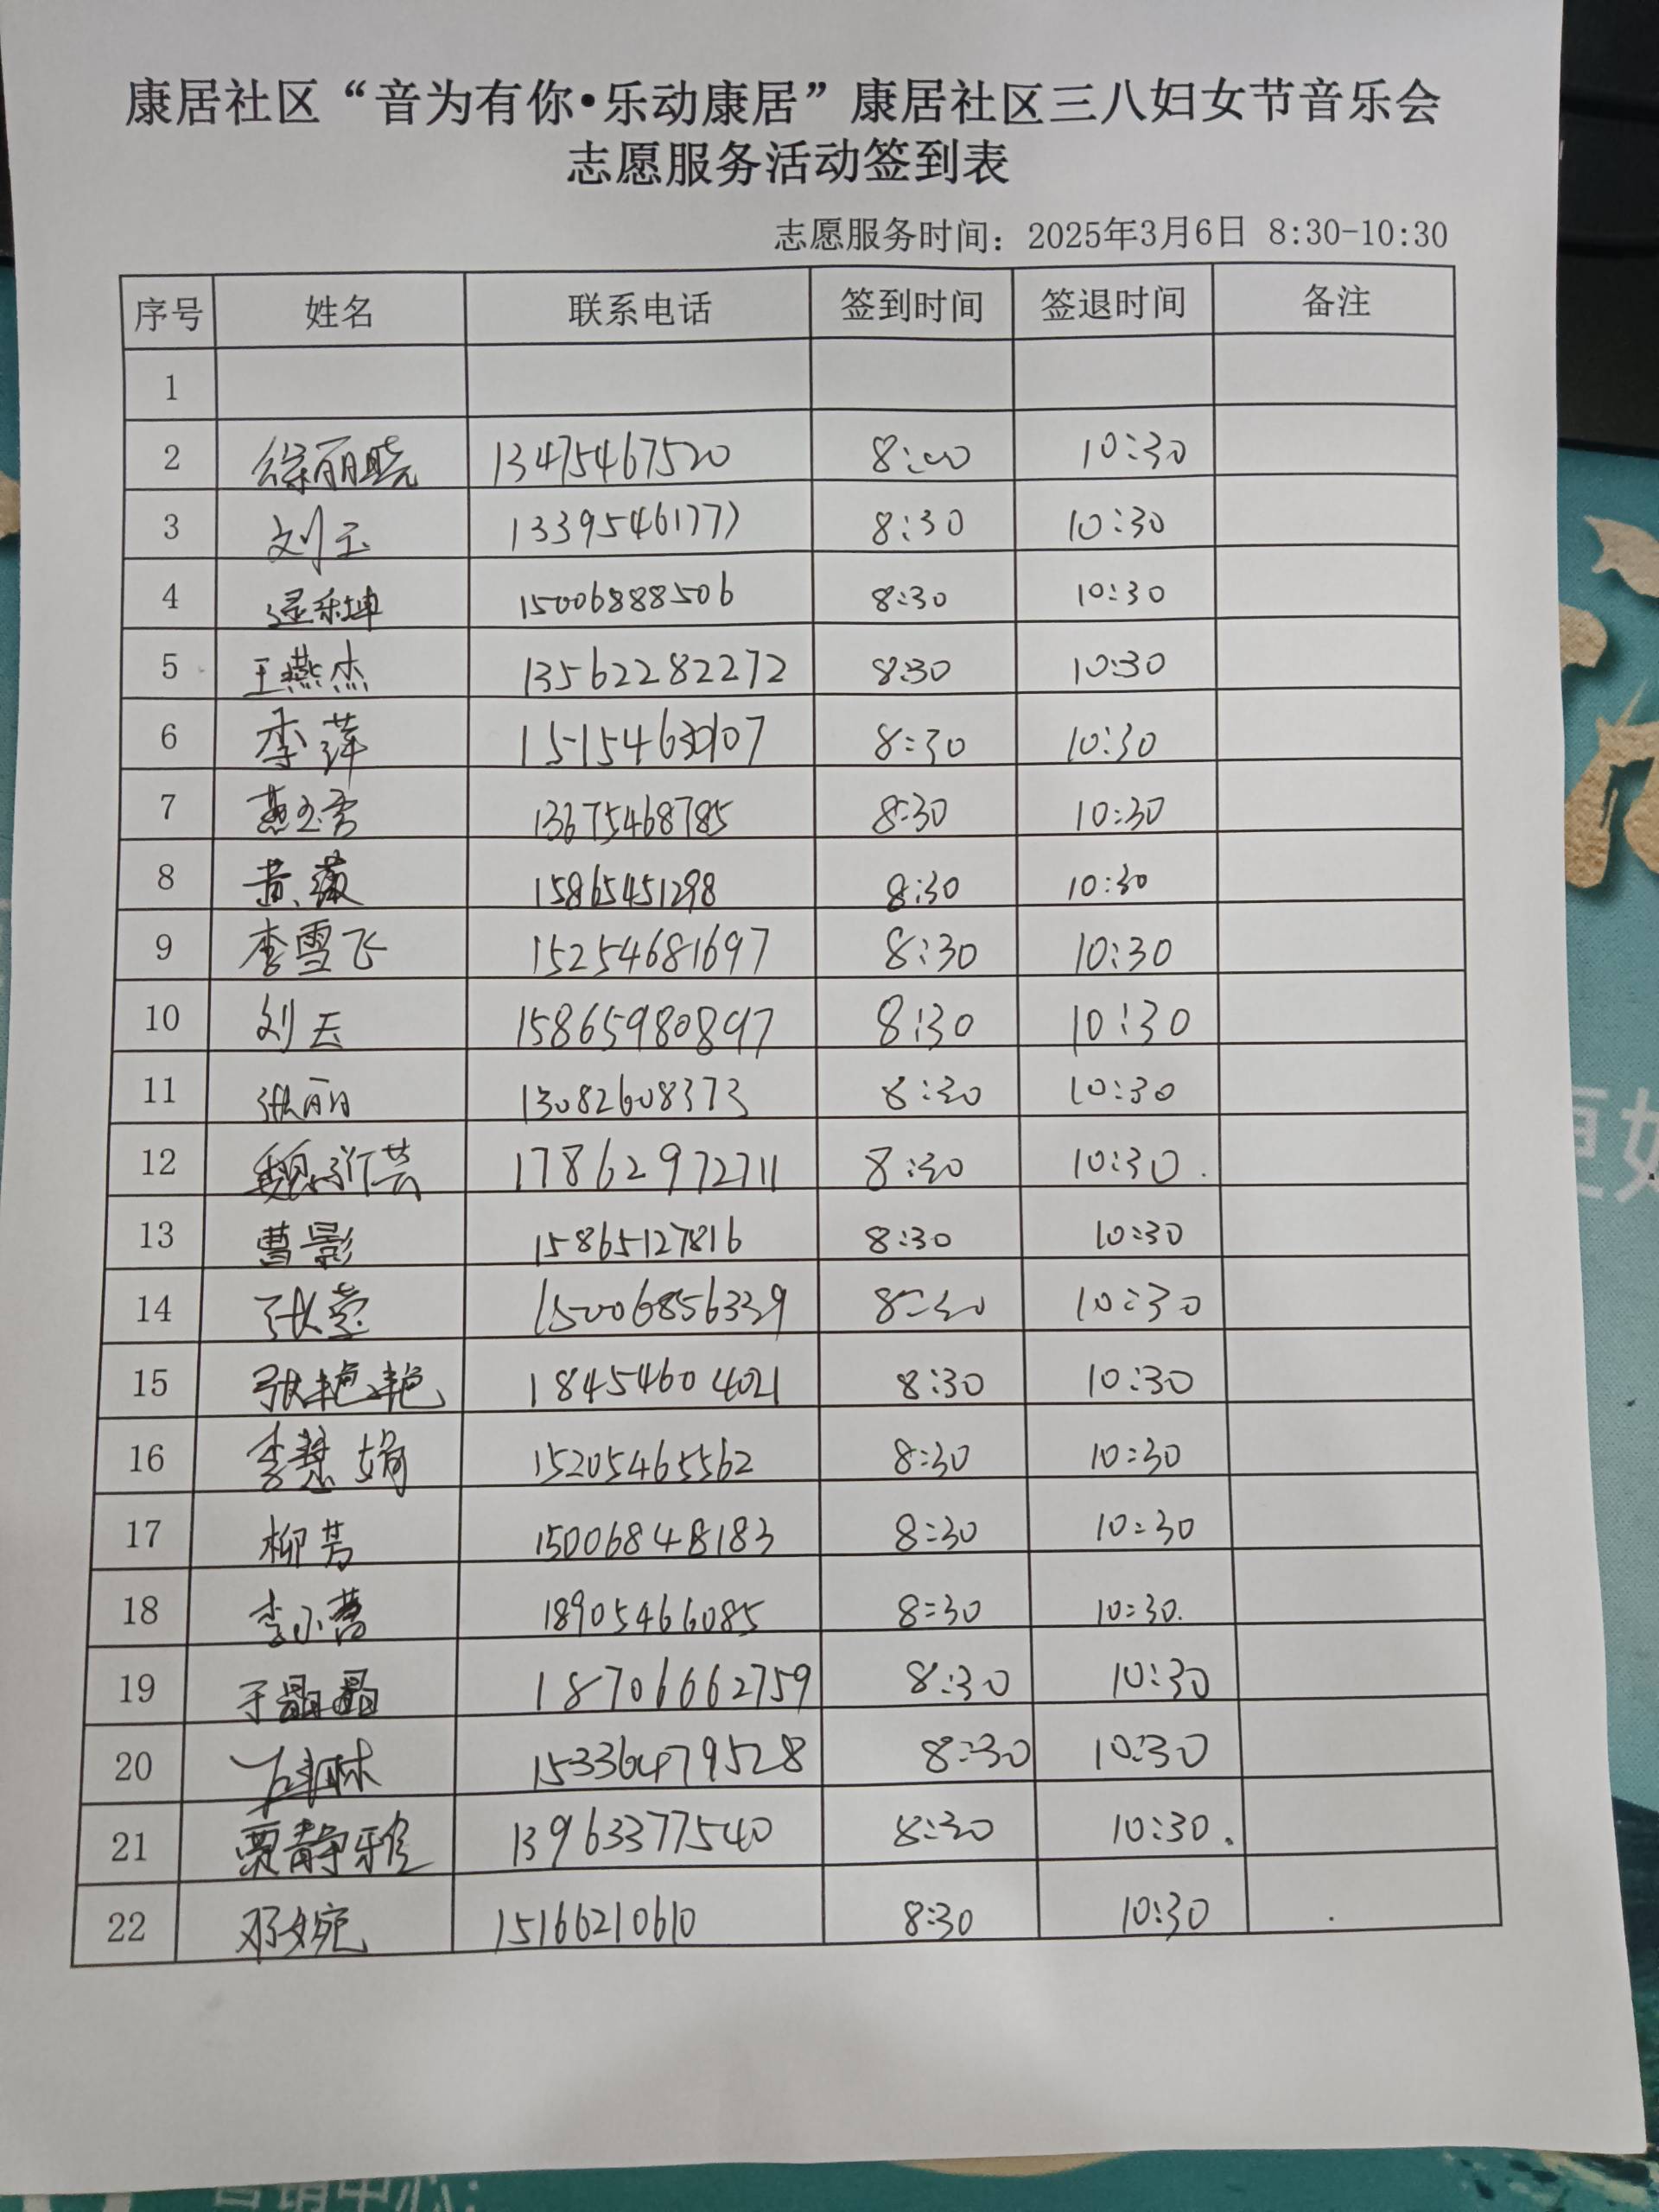 康居社区“音为有你•乐动康居”康居社区三八妇女节音乐会
志愿服务活动签到表
志愿服务时间：2025年3月6日 8:30-10:30
序号 姓名 联系电话 签到时间 签退时间 备注
1
2 徐丽晓 13475467520 8:00 10:30
3 刘玉 13395461777 8:30 10:30
4 15006888506 8:30 10:30
5 王燕杰 13562282272 8:30 10:30
6 李萍 8:30 10:30
7 燕玉秀 13675468785 8:30 10:30
8 黄薇 15865451298 8:30 10:30
9 李雪飞 15254681697 8:30 10:30
10 刘云 15865980897 8:30 10:30
11 张丽 13082608373 8:30 10:30
12 17862972711 8:30 10:30.
13 曹影 15865127816 8:30 10:30
14 15006856339 8:30 10:30
15 张艳艳 18454604021 8:30 10:30
16 李慧娟 15205465562 8:30 10:30
17 柳芳 15006848183 8:30 10:30
18 李小营 18905466085 8:30 10:30.
19 于晶晶 18706662759 8:30 10:30
20 15336479528 8:30 10:30
21 贾静雅 13963377540 8:30 10:30.
22 邓婉 15166210610 8:30 10:30
营销中心: